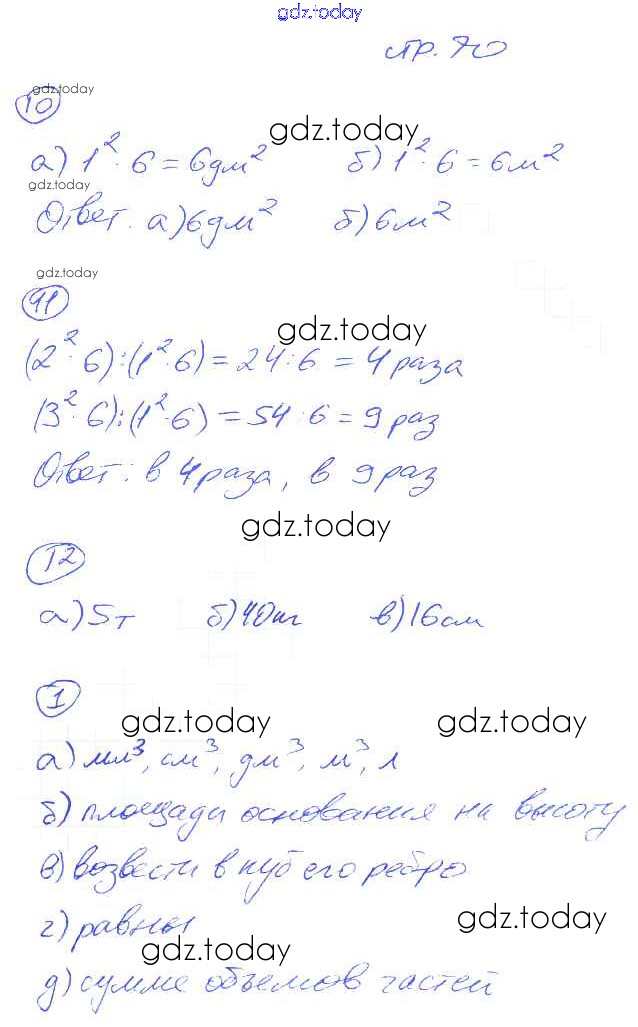 gdz.today
стр. 70
gdz.today
10
gdz.today
а) 1² · 6 = 6дм² б) 1² · 6 = 6м²
gdz.today
Ответ. а) 6дм² б) 6м²
gdz.today
11
gdz.today
(2² · 6) : (1² · 6) = 24 : 6 = 4 раза
(3² · 6) : (1² · 6) = 54 : 6 = 9 раз
Ответ: в 4 раза, в 9 раз
gdz.today
12
а) 5т б) 40кг в) 16см
1
gdz.today gdz.today
а) мм³, см³, дм³, м³, л
б) площади основания на высоту
в) возвести в куб его ребро
г) равны
gdz.today
gdz.today
д) сумме объемов частей